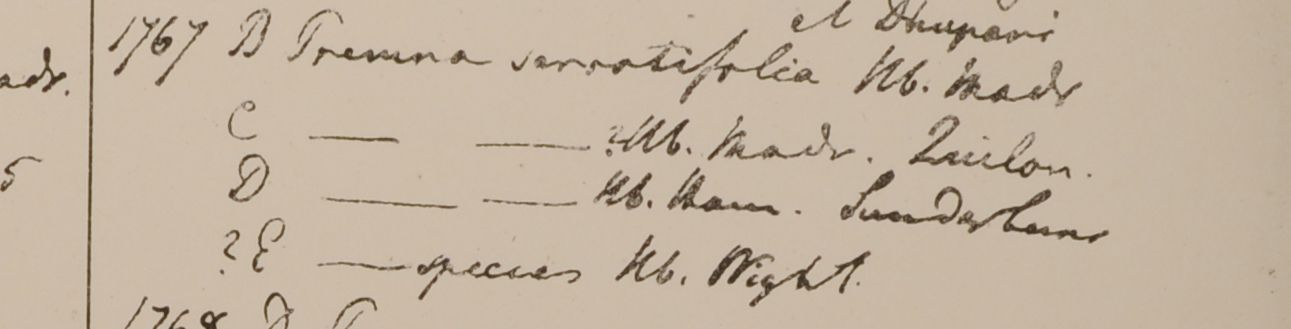 et Dhupani
adr. 1767 B Premna serratifolia Hb. Madr
C — — ? Hb. Madr. Quilon.
5 D — — Hb. Ham. Sunderbuns
? E — species Hb. Wight.
1768